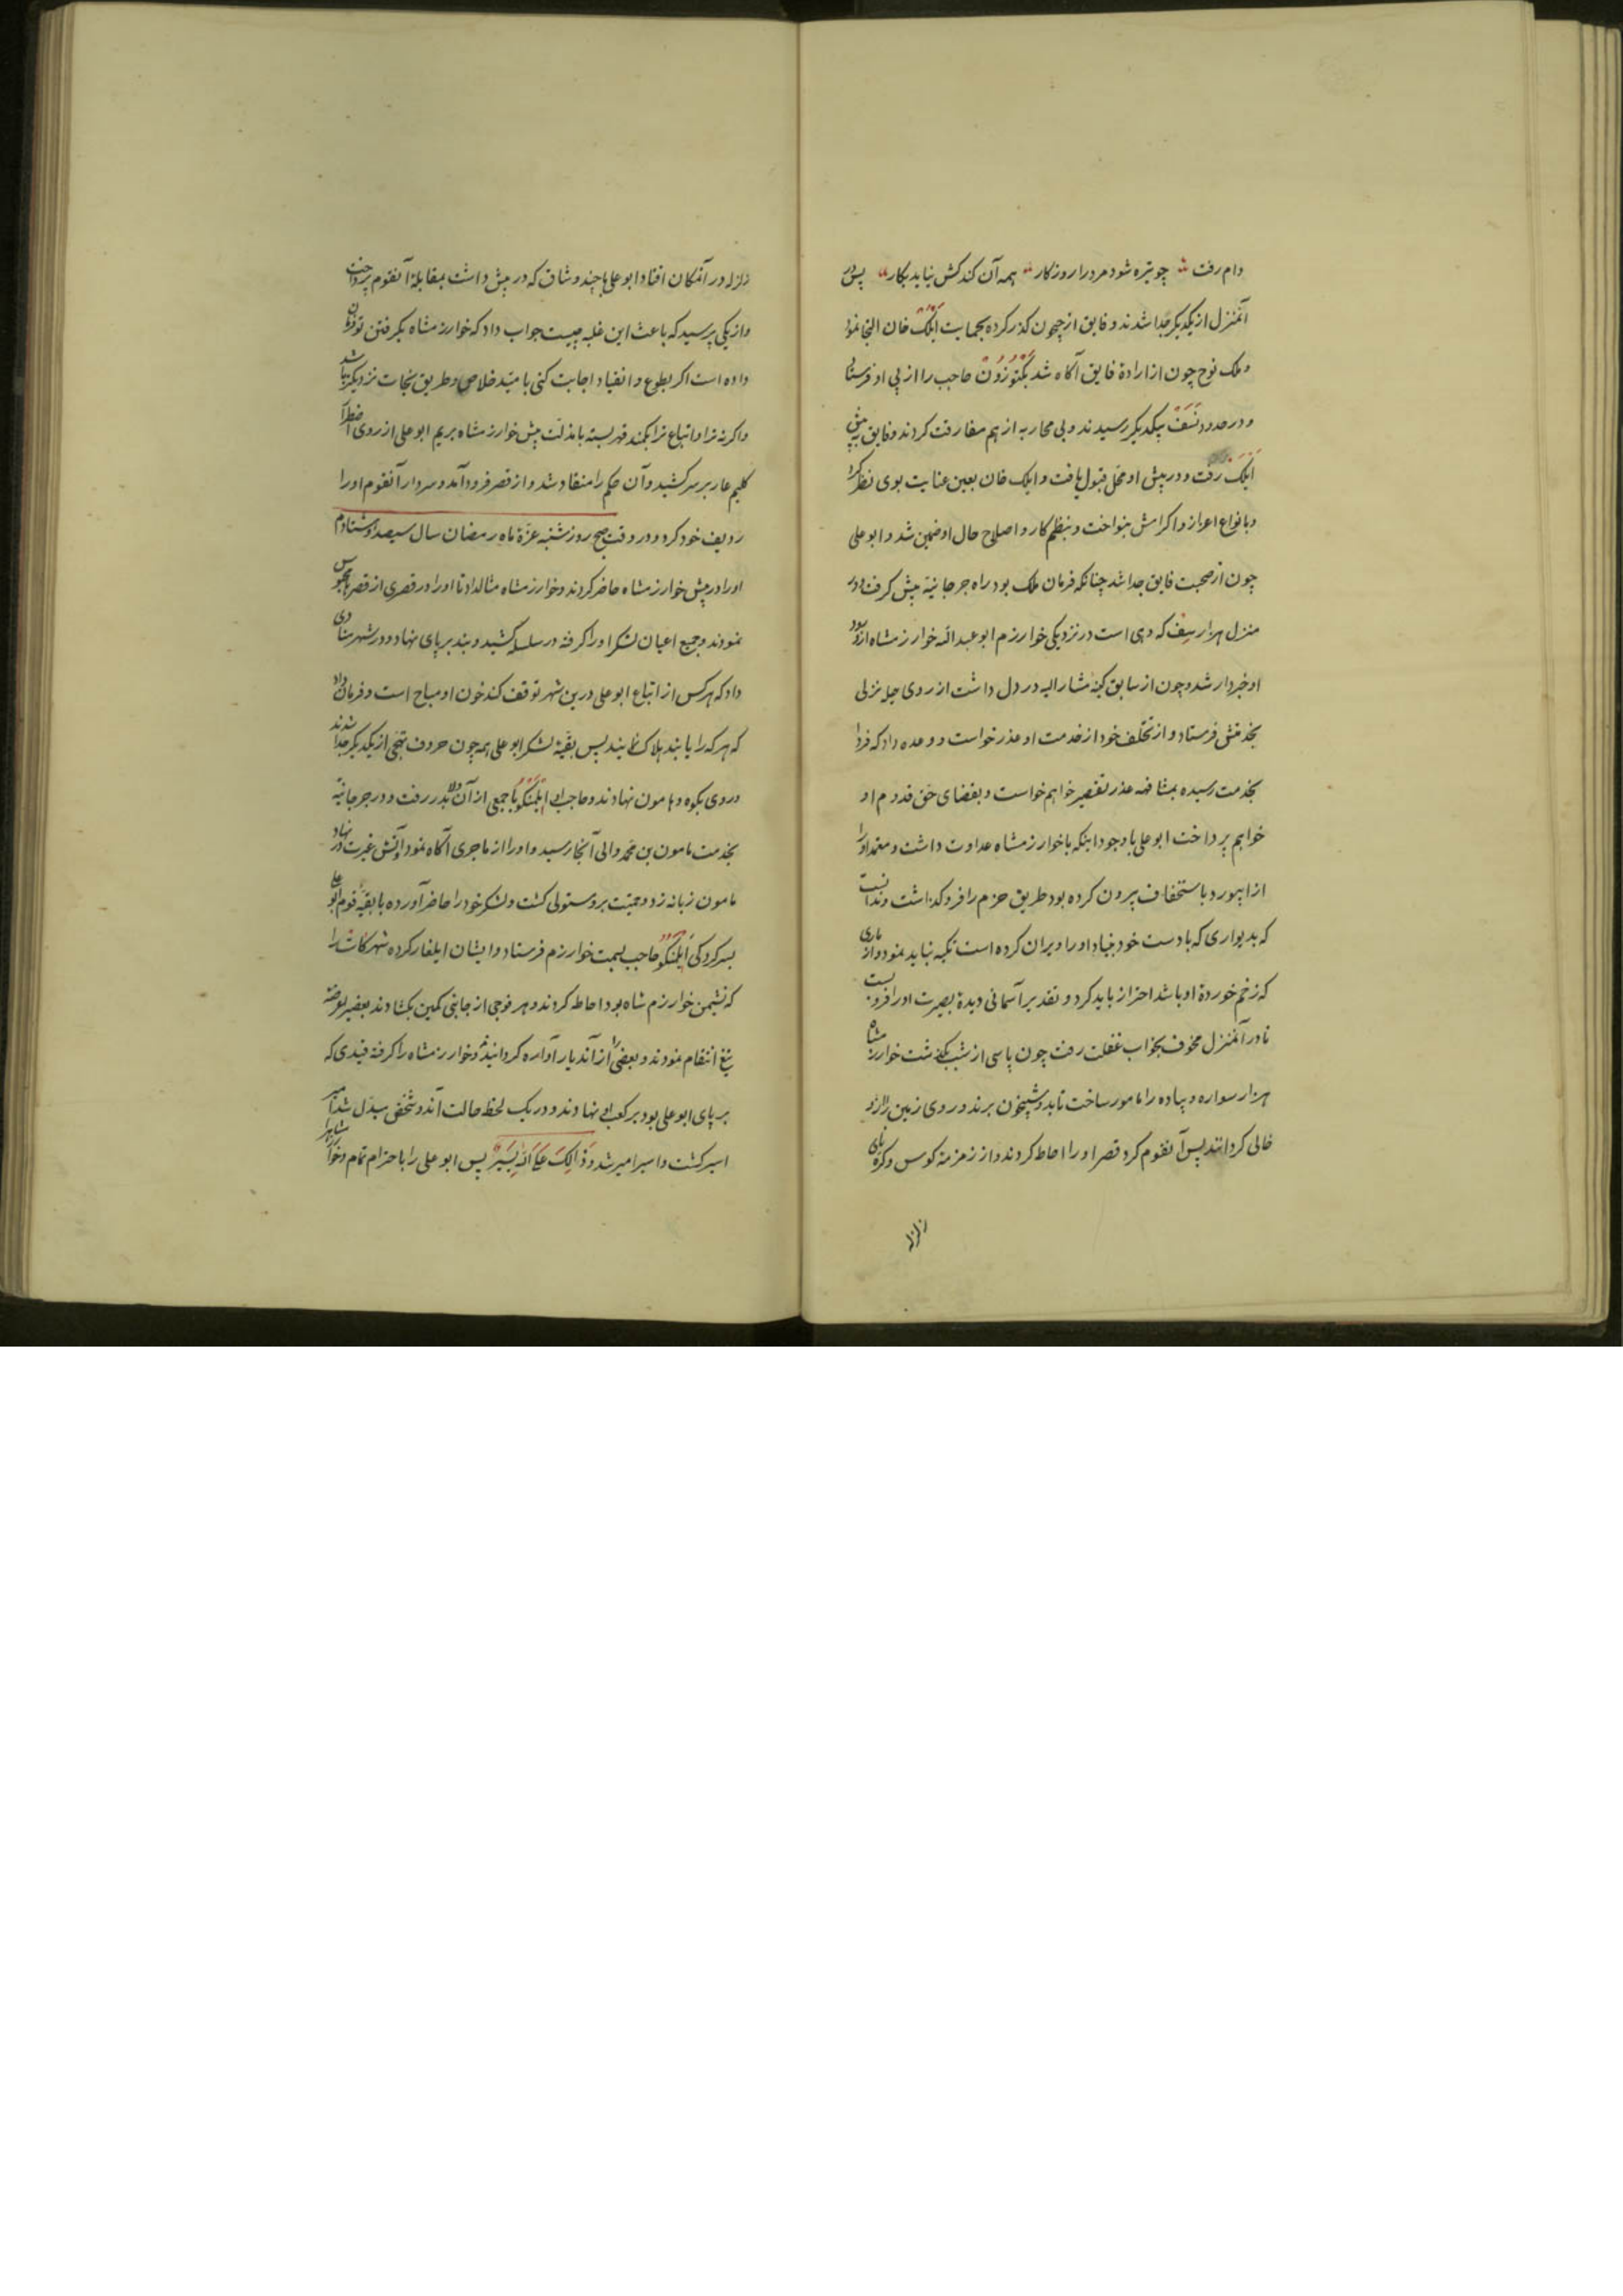 دام رفت چو تیره شود مرد را روزکار همه آن کند کش نیاید بکار پس در
آنمنزل از یکدیکر جدا شدند و فایق از جیحون کذر کرده بحمایت ایلک خان التجا نمود
و ملک نوح چون از ارادۀ فایق آکاه شد بکتوزون حاجب را از پی او فرستاد
و در حدود نسف بیکدیکر رسیدند و بی محاربه از هم مفارقت کردند و فایق به پیش
ایلک رفت و در پیش او محل قبول یافت و ایلک خان بعین عنایت بوی نظر کرد
و بانواع اعزاز و اکرامش بنواخت و بنظم کار و اصلاح حال او ضمین شد و ابو علی
چون از صحبت فایق جدا شد چنانکه فرمان ملک بود راه جرجانیه پیش کرفت و در
منزل هزارسف که دهی است در نزدیکی خوارزم ابو عبد الله خوارزمشاه از ورود
او خبردار شد و چون از سابق کینۀ مشار الیه در دل داشت از روی حیله نزلی
بخدمتش فرستاد و از تخلف خود از خدمت او عذر خواست و وعده داد که فردا
بخدمت رسیده بمشافهه عذر تقصیر خواهم خواست و بقضای حق قدوم او
خواهم پرداخت ابو علی با وجود اینکه با خوارزمشاه عداوت داشت و معتمد او را
از ابیورد باستخفاف بیرون کرده بود طریق حزم را فرو کذاشت و ندانست
که بدیواری که با دست خود بنیاد او را ویران کرده است تکیه نباید نمود و از ماری
که زخم خوردۀ او باشد احتراز باید کرد و تقدیر آسمانی دیدۀ بصیرت او را فرو بست
تا در آنمنزل مخوف بخواب غفلت رفت چون پاسی از شب بکذشت خوارزمشاه
هزار سواره و پیاده را مامور ساخت تا بدو شبیخون برند و روی زمین را از او
خالی کردانند پس آنقوم کرد قصر او را احاطه کردند و از زمزمۀ کوس و کره نای
زلزله
زلزله در آنمکان افتاد ابو علی با چند وشاق که در پیش داشت بمقابلۀ آنقوم پرداخت
و از یکی پرسید که باعث این غلبه چیست جواب داد که خوارزمشاه بکرفتن تو فرمان
داده است اکر بطوع و انقیاد اجابت کنی بامید خلاص و طریق نجات نزدیکتر باشد
و اکر نه ترا و اتباع ترا بکمند قهر بسته بامذلت پیش خوارزمشاه بریم ابو علی از روی اضطرار
کلیم عار بر سر کشید و آن حکم را منقاد شد و از قصر فرود آمد و سردار آنقوم او را
ردیف خود کرد و در وقت صبح روز شنبه غرۀ ماه رمضان سال سیصد و هشتاد و ششم
او را در پیش خوارزمشاه حاضر کردند و خوارزمشاه مثال داد تا او را در قصری از قصرها محبوس
نمودند و جمیع اعیان لشکر او را کرفته در سلسله کشید و بند بر پای نهاد و در شهر منادی
داد که هر کس از اتباع ابو علی درین شهر توقف کند خون او مباح است و فرمان داد
که هر که را یابند هلاک نمایند پس بقیۀ لشکر ابو علی همه چون حروف تهجی از یکدیکر جدا شدند
و روی بکوه و هامون نهادند و حاجب ایلمنکو با جمعی از آن ولا بدر رفت و در جرجانیه
بخدمت مامون بن محمد والی آنجا رسید و او را از ماجری آکاه نمود و آتش غیرت در نهاد
مامون زبانه زد و حمیت بر و مستولی کشت و لشکر خود را حاضر آورده با بقیۀ قوم ابو علی
بسرکردکی ایلمنکو حاجب بسمت خوارزم فرستاد و ایشان ایلغار کرده شهر کاث را
که نشیمن خوارزم شاه بود احاطه کردند و هر فوجی از جانبی کمین بکشادند بعضی را عرضه
تیغ انتقام نمودند و بعضی را از آندیار آواره کردانید و خوارزمشاه را کرفته قیدی که
بر پای ابو علی بود بر کعب وی نهادند و در یک لحظه حالت آندو شخص مبدل شد امیر
اسیر کشت و اسیر امیر شد و ذالک علی الله یسیر پس ابو علی را با احترام تمام و خوارزمشاه را